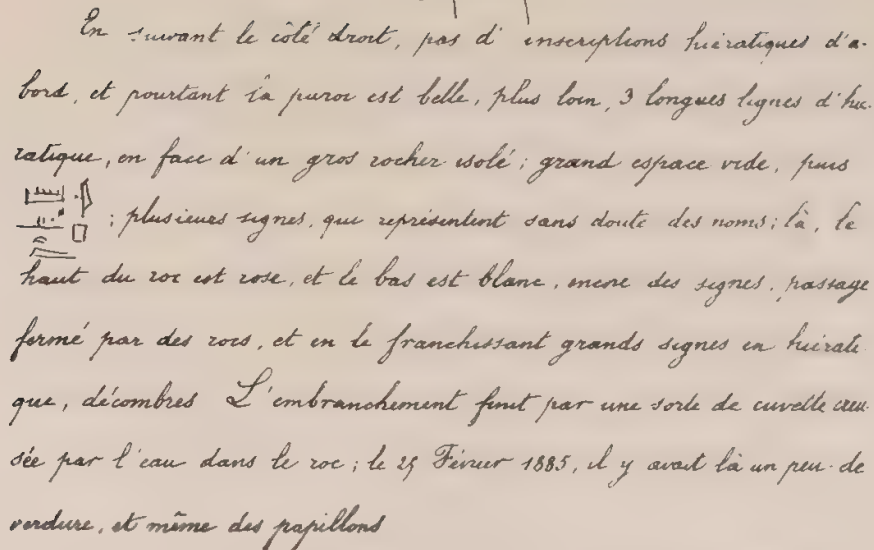 En suivant le côté droit, pas d'inscriptions hiératiques d'a-
bord, et pourtant la paroi est belle, plus loin, 3 longues lignes d'hié-
ratique, en face d'un gros rocher isolé; grand espace vide, puis
; plusieurs signes, qui représentent sans doute des noms; là, le
haut du roc est rose, et le bas est blanc, encore des signes, passage
fermé par des rocs, et en le franchissant grands signes en hiérati
que, décombres L'embranchement finit par une sorte de cuvette creu-
sée par l'eau dans le roc; le 25 Février 1885, il y avait là un peu de
verdure, et même des papillons